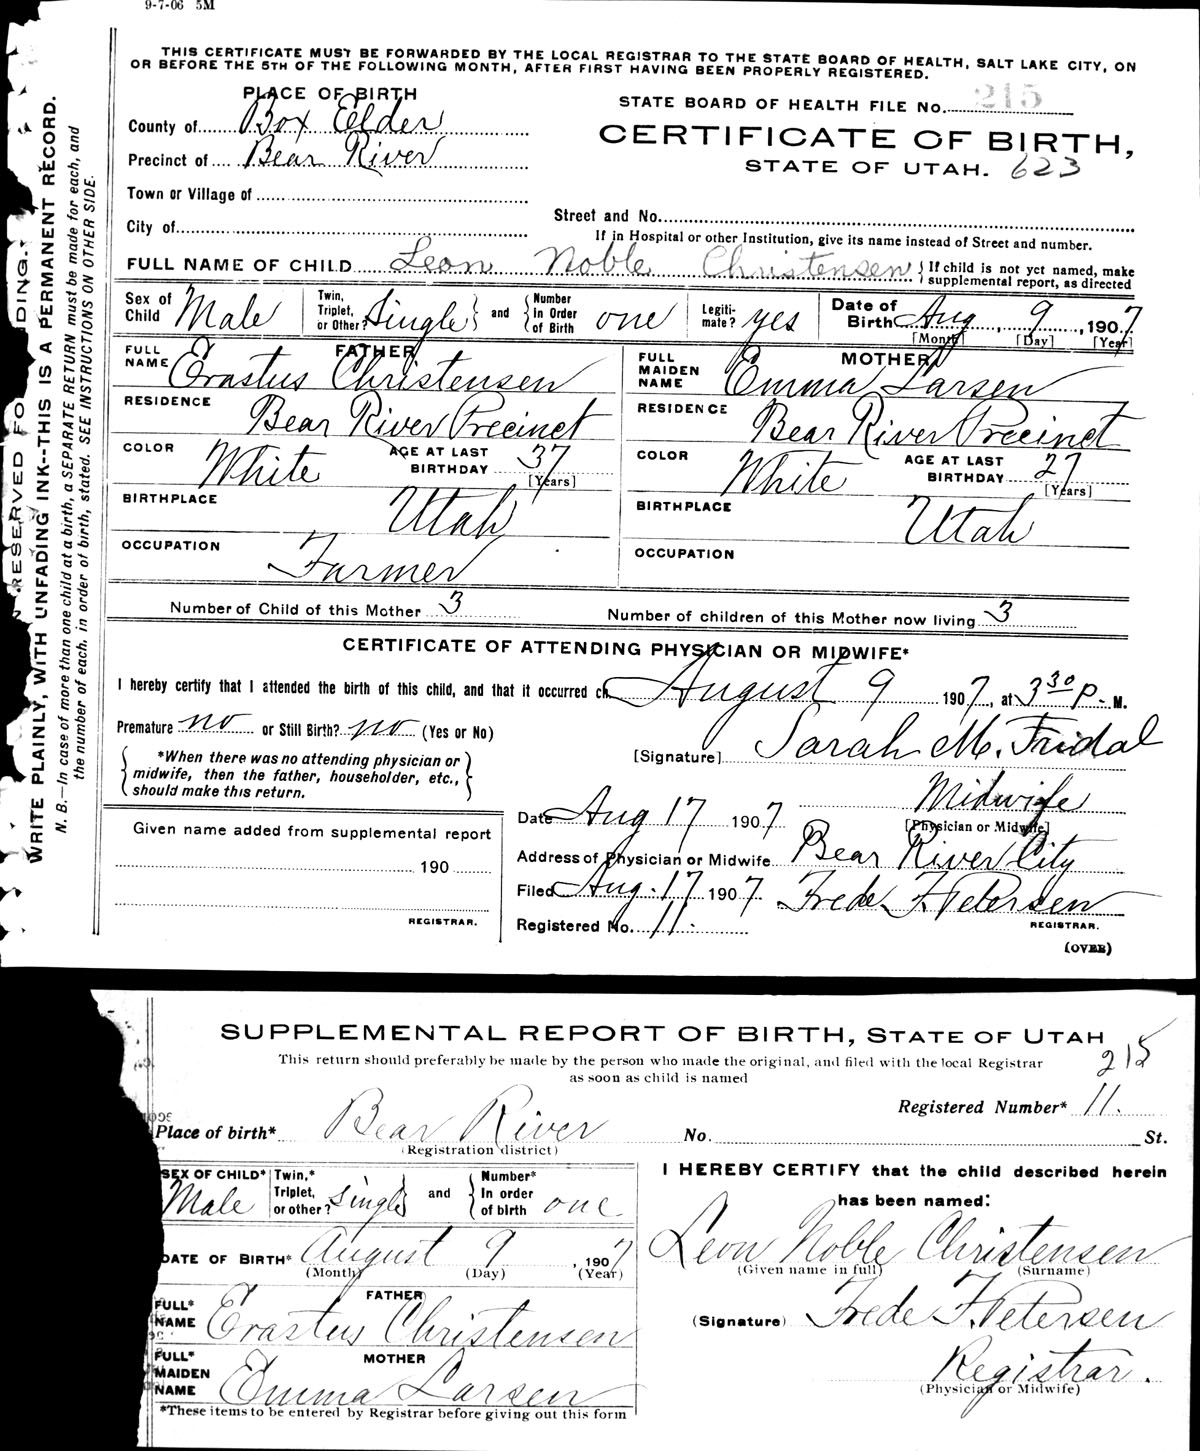 9-7-06 5M
THIS CERTIFICATE MUST BE FORWARDED BY THE LOCAL REGISTRAR TO THE STATE BOARD OF HEALTH, SALT LAKE CITY, ON
OR BEFORE THE 5TH OF THE FOLLOWING MONTH, AFTER FIRST HAVING BEEN PROPERLY REGISTERED.
PLACE OF BIRTH
County of Box Elder
Precinct of Bear River
Town or Village of
City of
STATE BOARD OF HEALTH FILE No. 215
CERTIFICATE OF BIRTH,
STATE OF UTAH. 623
Street and No.
If in Hospital or other Institution, give its name instead of Street and number.
FULL NAME OF CHILD Leon Noble Christensen { If child is not yet named, make
supplemental report, as directed
Sex of Child Male
Twin, Triplet, or Other? Single } and { Number In Order of Birth one
Legiti-mate? yes
Date of Birth Aug 9, 1907
[Month] [Day] [Year]
FATHER
FULL NAME Erastus Christensen
RESIDENCE Bear River Precinct
COLOR White AGE AT LAST BIRTHDAY 37
[Years]
BIRTHPLACE Utah
OCCUPATION Farmer
MOTHER
FULL MAIDEN NAME Emma Larsen
RESIDENCE Bear River Precinct
COLOR White AGE AT LAST BIRTHDAY 27
[Years]
BIRTHPLACE Utah
OCCUPATION
Number of Child of this Mother 3 Number of children of this Mother now living 3
CERTIFICATE OF ATTENDING PHYSICIAN OR MIDWIFE*
I hereby certify that I attended the birth of this child, and that it occurred August 9 1907, at 3 30 P. M.
Premature no or Still Birth? no (Yes or No)
{ *When there was no attending physician or
midwife, then the father, householder, etc.,
should make this return. }
[Signature] Sarah M. Fridal
Midwife
[Physician or Midwife]
Given name added from supplemental report
190
REGISTRAR.
Date Aug 17 1907
Address of Physician or Midwife Bear River City
Filed Aug. 17 1907 Frede F. Petersen
REGISTRAR.
Registered No. 11.
(OVER)
RESERVED FO DING.
WRITE PLAINLY, WITH UNFADING INK--THIS IS A PERMANENT RECORD.
N. B.—In case of more than one child at a birth, a SEPARATE RETURN must be made for each, and
the number of each, in order of birth, stated. SEE INSTRUCTIONS ON OTHER SIDE.
SUPPLEMENTAL REPORT OF BIRTH, STATE OF UTAH
215
This return should preferably be made by the person who made the original, and filed with the local Registrar
as soon as child is named
Registered Number* 11.
Place of birth* Bear River No. St.
(Registration district)
SEX OF CHILD* Male
Twin,* Triplet, or other? Single } and { Number* In order of birth one
DATE OF BIRTH* August 9, 1907
(Month) (Day) (Year)
FATHER
FULL* NAME Erastus Christensen
MOTHER
FULL* MAIDEN NAME Emma Larsen
*These items to be entered by Registrar before giving out this form
I HEREBY CERTIFY that the child described herein
has been named:
Leon Noble Christensen
(Given name in full) (Surname)
(Signature) Frede F. Petersen
Registrar.
(Physician or Midwife)